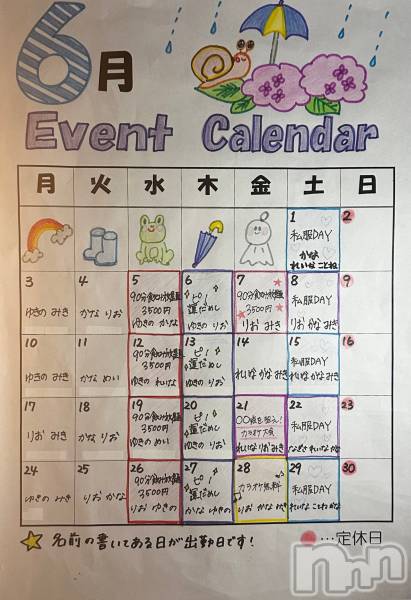 6月
Event Calendar
月 火 水 木 金 土 日
1 2
私服DAY
かな
れいな ことね
3 4 5 6 7 8 9
ゆきの みき
かな りお
3500円
ゆきの かな
ピノ
運だめし
ゆきの りお
3500円
りお みき
私服DAY
りお かな みき
10 11 12 13 14 15 16
ゆきの みき
かな めい
3500円
ゆきの れいな
ピノ
運だめし
ゆきの りお
れいな かな みき
私服DAY
れいな かな みき
17 18 19 20 21 22 23
りお みき
かな りお
3500円
ゆきの れいな
ピノ
運だめし
ゆきの りお
〇〇点を狙え!
カラオケ大会
れいな りお みき
私服DAY
れいな かな
24 25 26 27 28 29 30
ゆきの みき
りお かな
3500円
りお ゆきの
ピノ
運だめし
かな ゆきの
カラオケ無料
りお かな
私服DAY
れいな ことね かな
名前の書いてある日が出勤日です!
…定休日
nmn